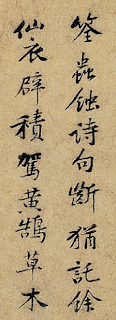 筌蟲蝕詩句斷猶託餘
仙衣辟積駕黃鵠草木